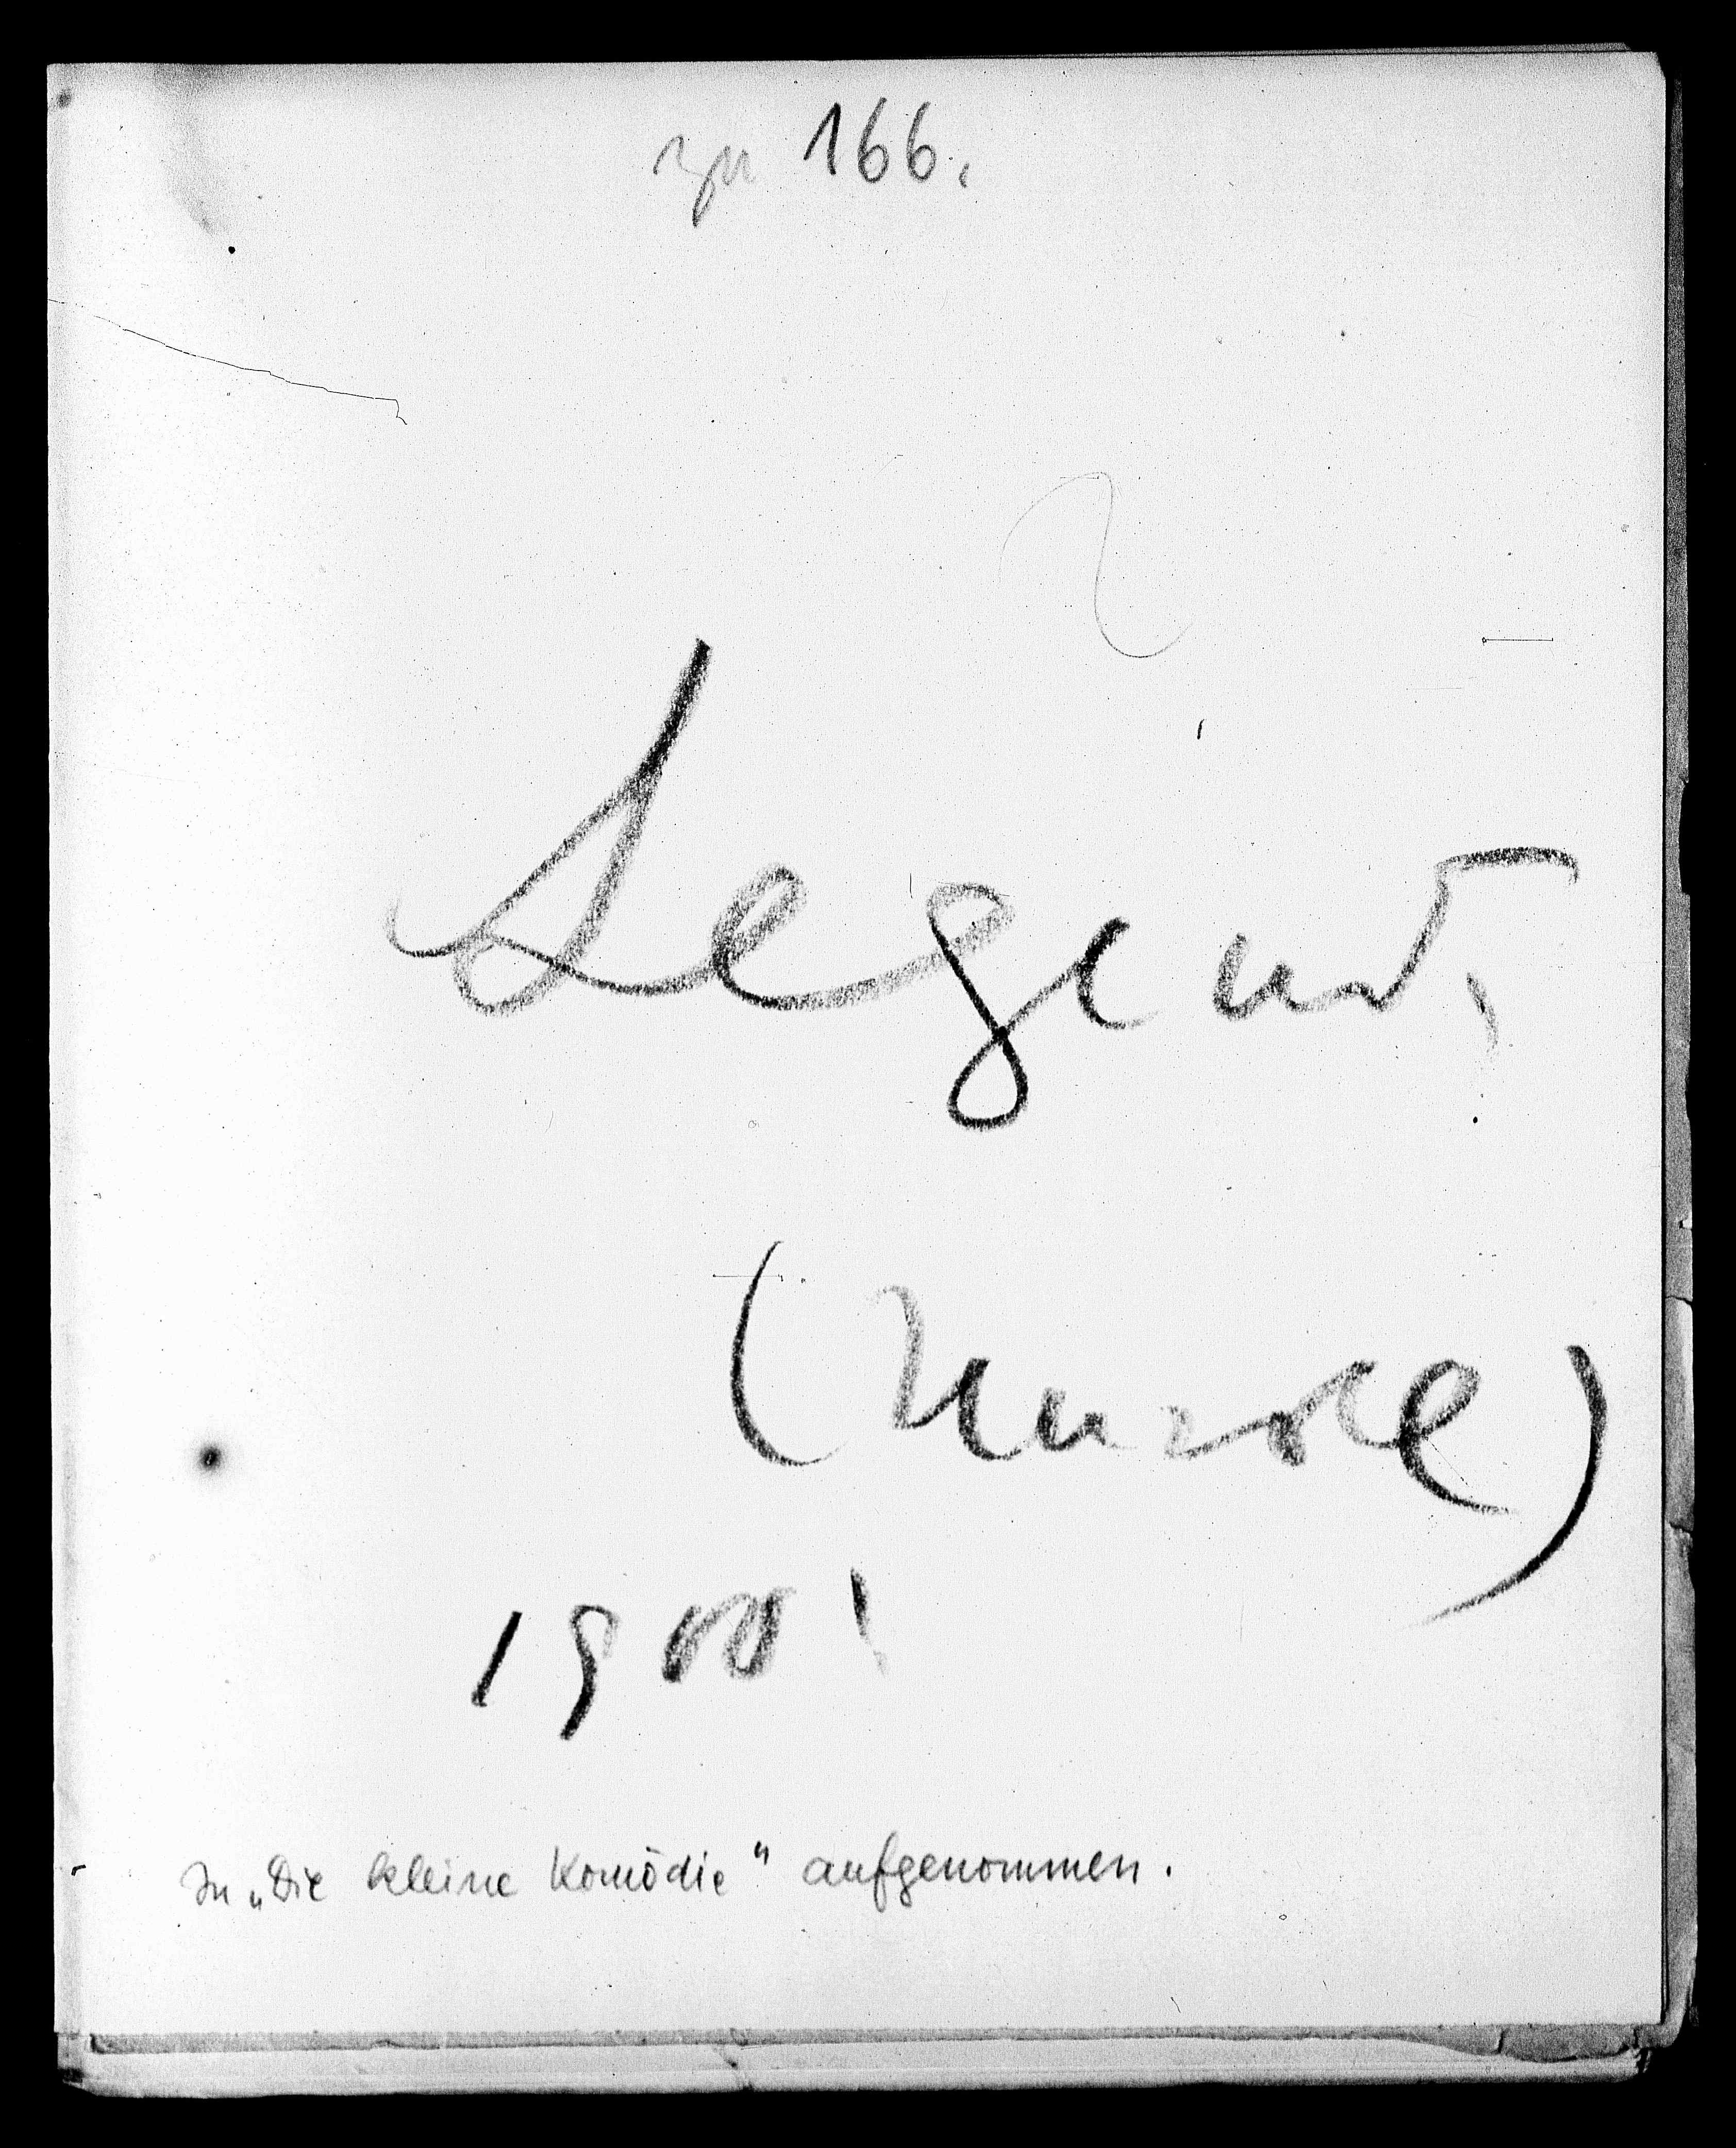 zu 166.
Legende
1900
In „Die kleine Komödie“ aufgenommen.